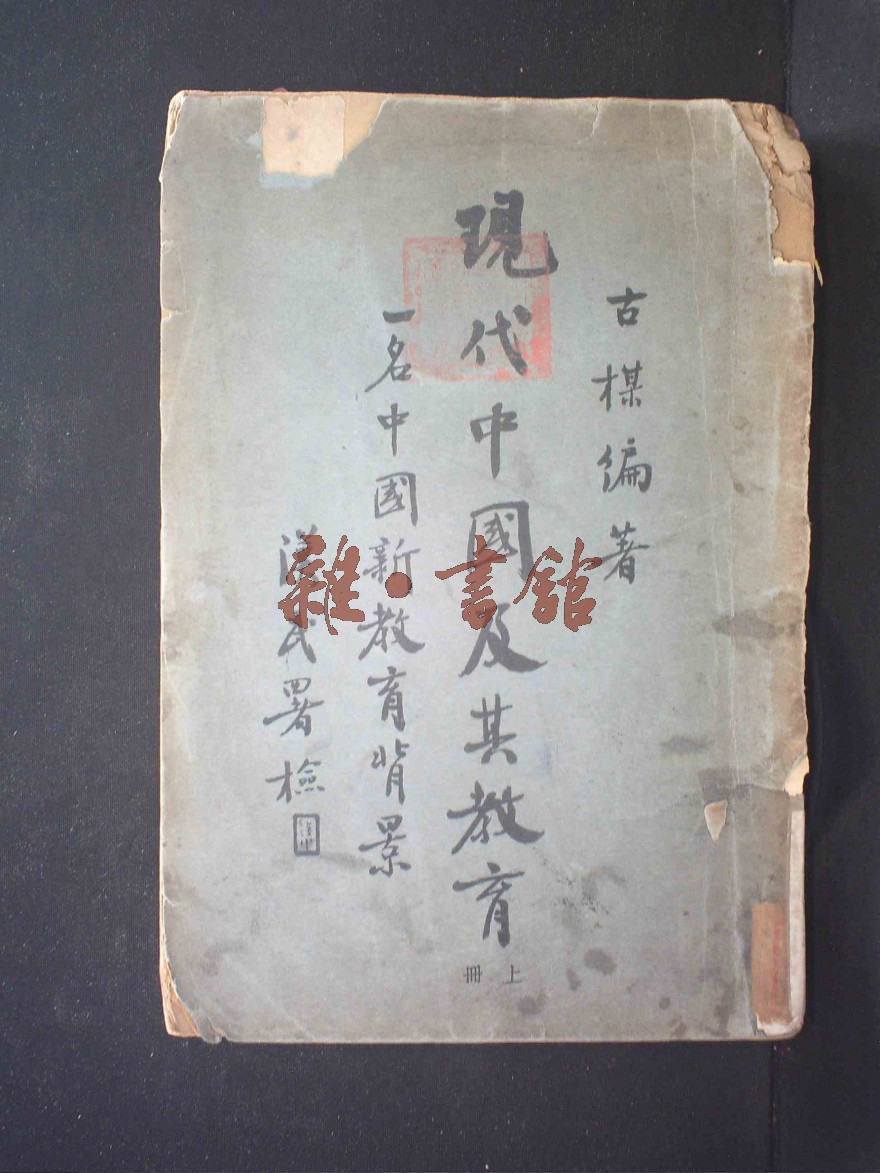 古楳編著
現代中國及其教育
上冊
一名中國新教育背景
漢民署檢
雜·書館